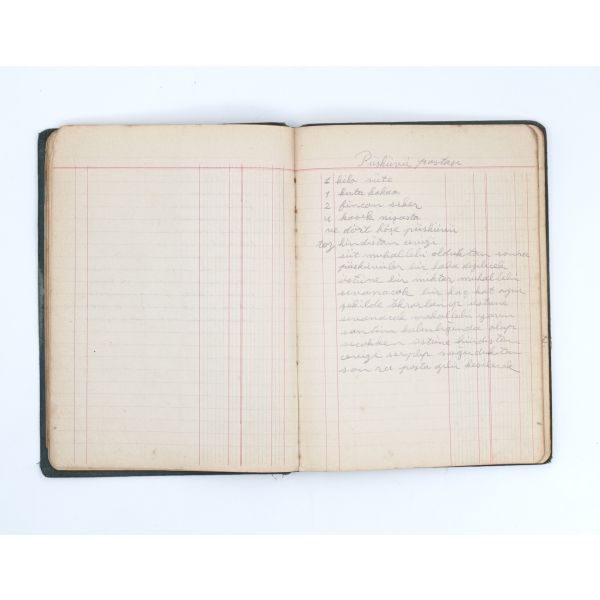 Püskürü pastası
1 kilo süte
1 kuta kakao
2 fincan seker
4 kasık nisasta
ve dört köse püskürü
toz hindistan cevizi
süt muhallebi olduktan sonra
püskürüler bir kaba dizilecek
üstüne bir miktar muhallebi
sıvanacak bir kaç kat aynı
şekilde tekrarlanıp üstüne
sıvanacak muhallebi yarım
santim kalınlığında olup
sıcakken üstüne hindistan
cevizi serpilip soğuduktan
sonra pasta gibi kesilecek